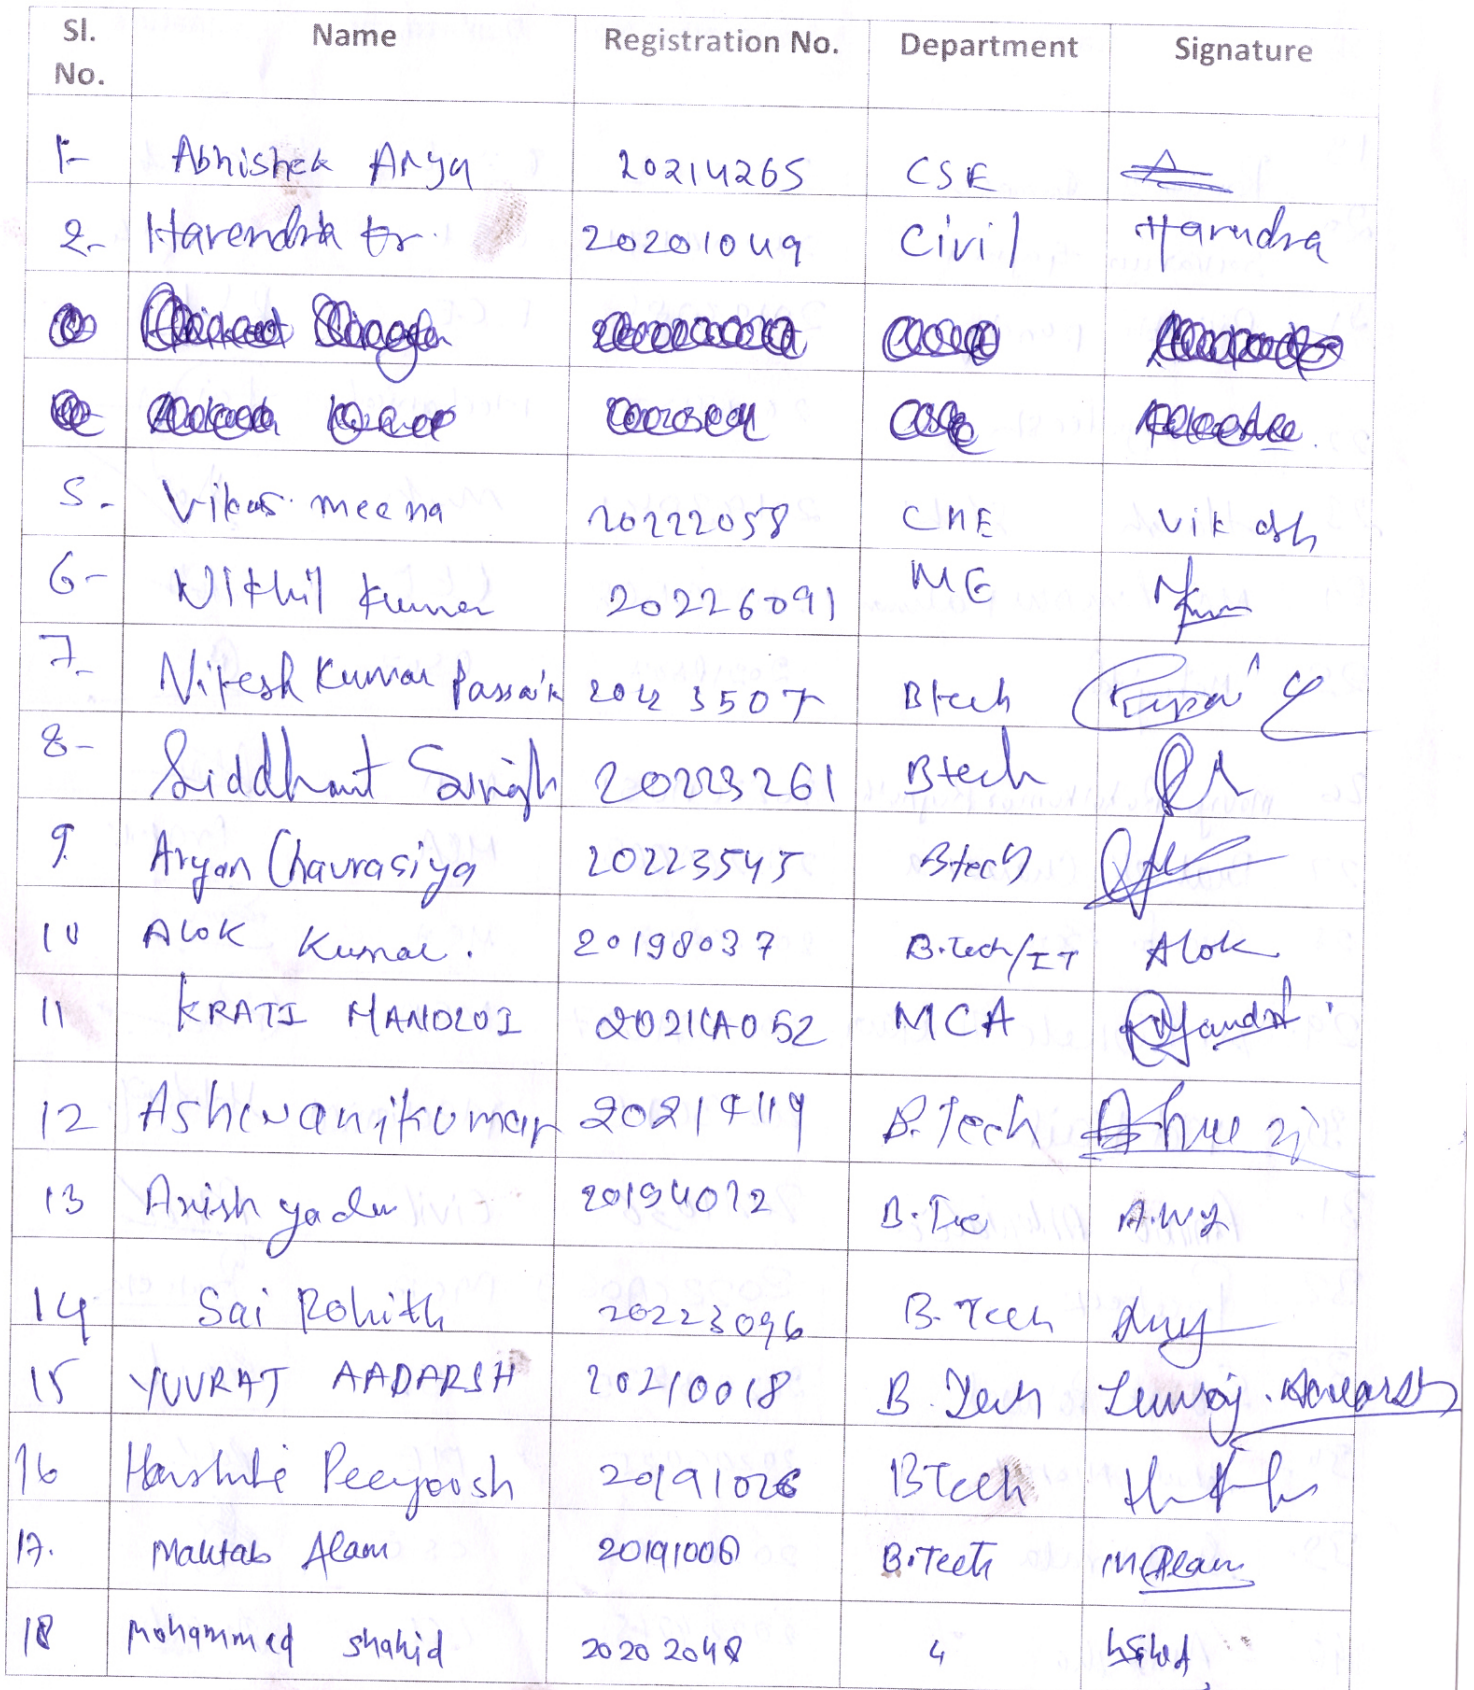 Sl. No. Name Registration No. Department Signature
1- Abhishek Arya 20214265 CSE
2- Harendra kr. 20201049 Civil Harendra
5- Vikas meena 20222058 CHE Vikash
6- Nikhil Kumar 20226091 ME
7- Nitesh Kumar 3507 Btech
8- Siddhant Singh 20223261 Btech
9. Aryan Chaurasiya 20223545 Btech
10 Alok Kumar. 20198037 B.Tech/IT Alok
11 KRATI MANDLOI 2021CA052 MCA
12 Ashwanikumar 20214119 B.Tech
13 Anish yadav 20194072
14 Sai Rohith 20223096 B.Tech
15 YUVRAJ AADARSH 20210018 B.Tech
16 Peeyoosh 20191026 BTech
17. Mahtab Alam 20191006 B.Tech MAlam
18 Mohammed shahid 20202048 4